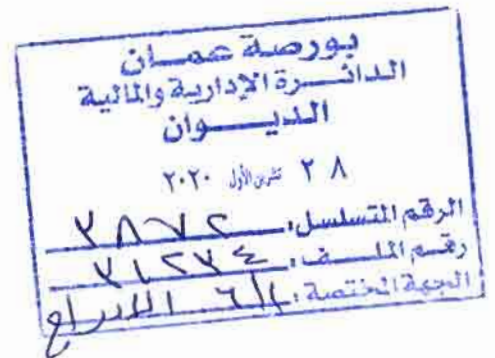 بورصة عمان
الدائرة الإدارية والمالية
الديوان
٢٨ تشرين الأول ٢٠٢٠
الرقم المتسلسل: ٣٨٧٢
رقم الملف: ٣١٢٧٤
الجهة المختصة: الإدراج